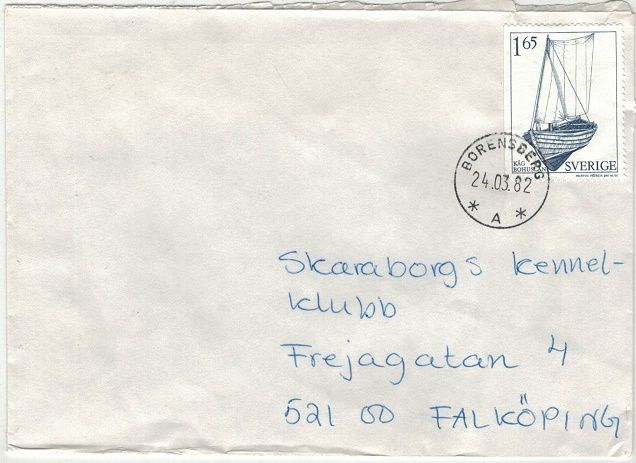 165
KÅG
BOHUSLÄN
SVERIGE
BORENSBERG
24.03.82
* A *
Skaraborgs kennel-
klubb
Frejagatan 4
521 00 FALKÖPING